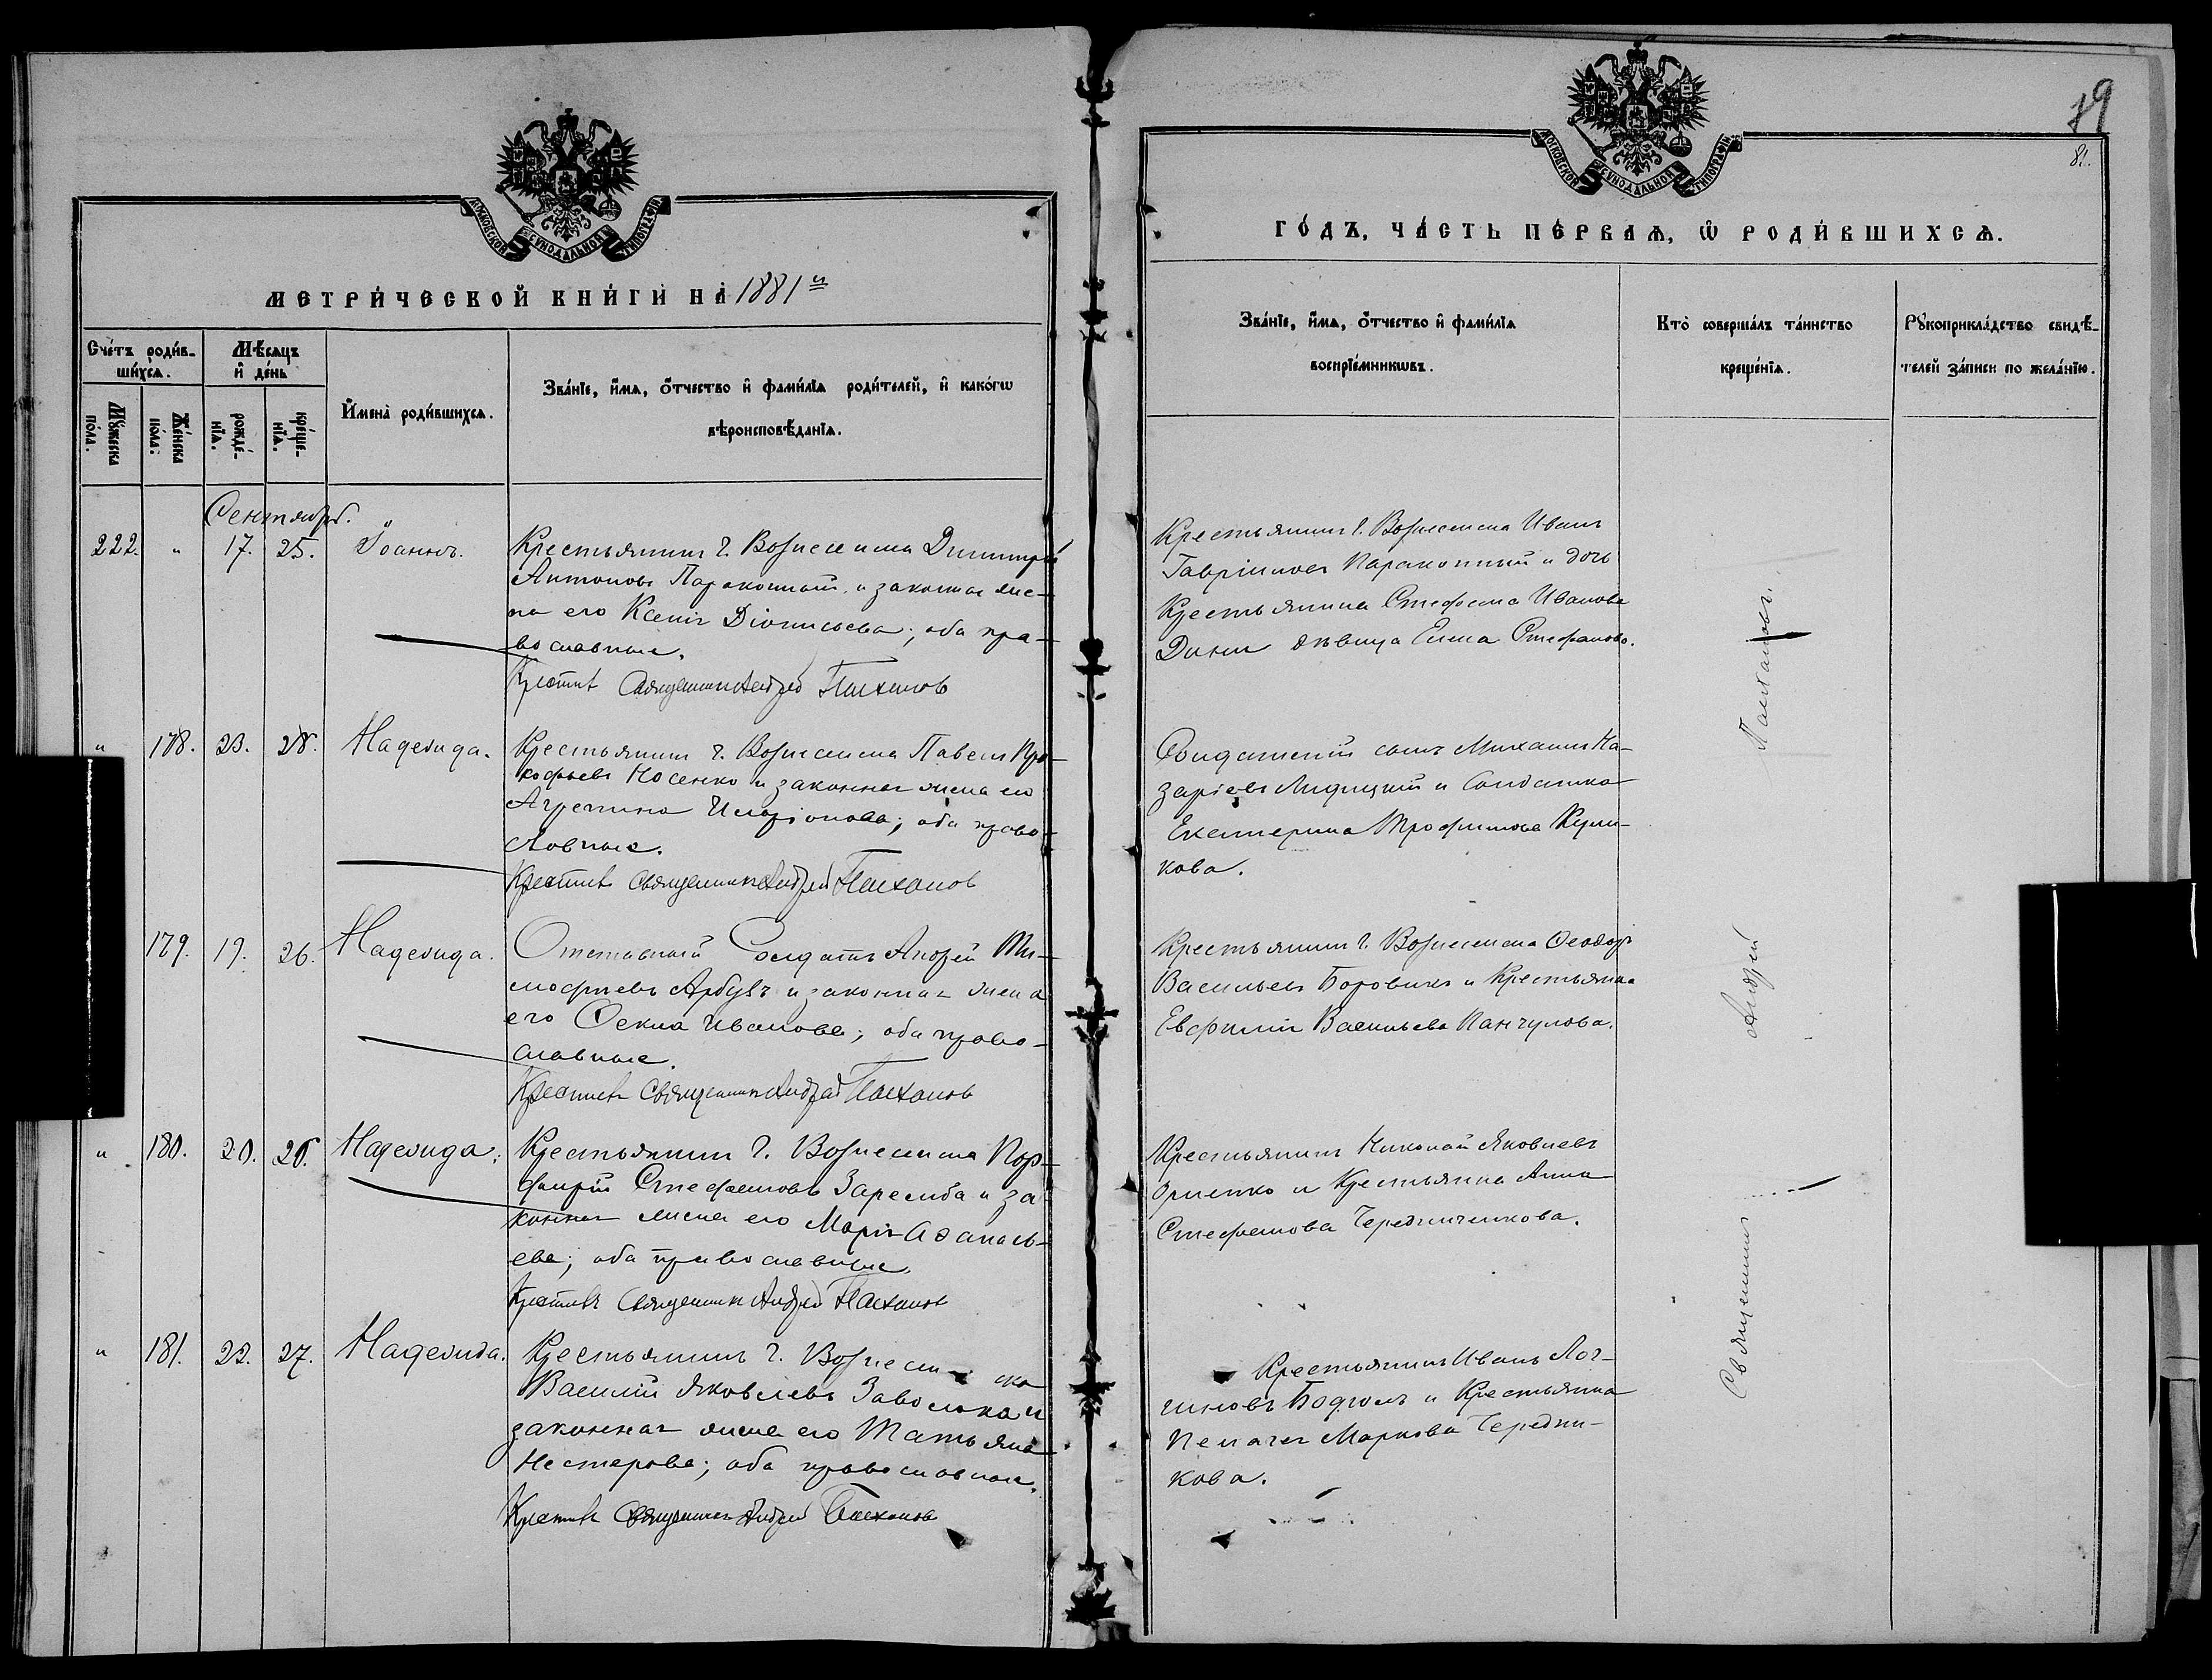 МОСКОВСКОЙ СѴНОДАЛЬНОЙ ТИПОГРАФІИ
МЕТРИ́ЧЕСКОЙ КНИ́ГИ НА 1881й
Сче́тъ роди́в-
ши́хсѧ.
Мѣ́сѧцъ
и҆ де́нь
И҆мена̀ роди́вшихсѧ.
Зва́нїе, и҆́мѧ, ѻ҆́тчество и҆ фами́лїѧ роди́телей, и҆ како́гѡ
вѣроисповѣ́данїѧ.
Мꙋ́жеска
по́ла.
Же́нска
по́ла.
рожде́-
нїѧ.
креще́-
нїѧ.
Сентябрь.
222. " 17. 25. Іоаннъ.
Крестьянинъ г. Вознесенска Димитрій
Антоновъ Паракотный, и законная же-
на его Ксенія Діонисьева; оба пра-
вославные.
Крестилъ Священникъ Андрей Пасхаловъ
" 178. 23. 28. Надежда.
Крестьянинъ г. Вознесенска Павелъ Про-
кофьевъ Носенко и законная жена его
Агрепина Иларіонова; оба право-
славные.
Крестилъ Священникъ Андрей Пасхаловъ
179. 19. 26. Надежда.
Отставной Солдатъ Андрей Ти-
мофѣевъ Арбузъ и законная жена
его Фекла Иванова; оба право-
славные.
Крестилъ Священникъ Андрей Пасхаловъ
" 180. 20. 26. Надежда.
Крестьянинъ г. Вознесенска Пор-
фирій Стефановъ Заремба и за-
конная жена его Марія Аѳанась-
ева; оба православные.
Крестилъ Священникъ Андрей Пасхаловъ
" 181. 22. 27. Надежда.
Крестьянинъ г. Вознесенска
Василій Яковлевъ Заволока и
законная жена его Татьяна
Нестерова; оба православные.
Крестилъ Священникъ Андрей Пасхаловъ
79
81.
МОСКОВСКОЙ СѴНОДАЛЬНОЙ ТИПОГРАФІИ
ГО́ДЪ, ЧА́СТЬ ПЕ́РВАѦ, Ѡ҆ РОДИ́ВШИХСѦ.
Зва́нїе, и҆́мѧ, ѻ҆́тчество и҆ фами́лїѧ
воспрїе́мникѡвъ.
Кто̀ соверша́лъ та́инство
креще́нїѧ.
Рꙋкоприкла́дство свидѣ́-
телей за́писи по жела́нїю.
Крестьянинъ г. Вознесенска Иванъ
Гавріиловъ Паракотный и дочь
Крестьянина Стефана Иванова
дѣвица Елена Стефанова.
Солдатскій сынъ Михаилъ На-
заріевъ Лидицкій и Солдатка
Екатерина Трофимова Кули-
кова.
Крестьянинъ г. Вознесенска Феодоръ
Васильевъ Боровикъ и Крестьянка
Евфимія Васильева Панчулова.
Крестьянинъ Николай Яковлевъ
и Крестьянка Анна
Стефанова Чередниченкова.
Крестьянинъ Иванъ Лог-
гиновъ Бодюлъ и Крестьянка
Пелагея Маркова Чередни-
кова.
Священникъ Андрей Пасхаловъ.